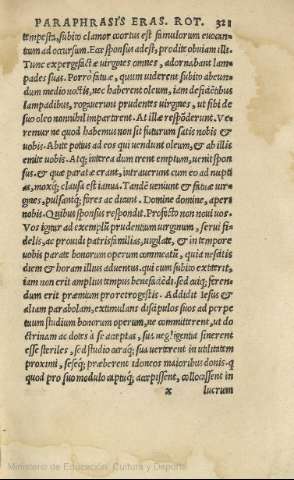 PARAPHRASIS ERAS. ROT. 321
tempesta, subito clamor exortus est famulorum euocan-
tum ad occursum. Ecce sponsus adest, prodite obuiam illi.
Tunc expergefactæ uirgines omnes, adornabant lam-
pades suas. Porrò fatuæ, quum uiderent subito abeun-
dum medio noctis, nec haberent oleum, iam deficiẽtibus
lampadibus, rogauerunt prudentes uirgines, ut sibi de
suo oleo nonnihil impartirent. At illæ respõderunt. Ve-
remur ne quod habemus non sit futurum satis nobis &
uobis. Abite potius ad eos qui uendunt oleum, & ab illis
emite uobis. Atq; interea dum irent emptum, uenit spon
sus, & quæ paratæ erant, intrauerunt cum eo ad nupti
as, moxq; clausa est ianua. Tandẽ ueniunt & fatuæ uirgi-
nes, pulsantq; fores ac dicunt. Domine domine, aperi
nobis. Quibus sponsus respondit. Profecto non noui uos.
Vos igitur ad exemplũ prudentum uirginum, serui fi-
delis, ac prouidi patrisfamilias, uigilate, & in tempore
uobis parate bonorum operum commeatũ, quia nescitis
diem & horam illius aduentus. qui cum subito extiterit,
iam non erit amplius tempus benefaciẽdi: sed cuiq; feren-
dum erit præmium pro retrogestis. Addidit Iesus &
aliam parabolam, extimulans discipulos suos ad perpe
tuum studium bonorum operum, ne committerent, ut do
ctrinam ac dotes à se acceptas, sua negligentia sinerent
esse steriles, sed studio acriq; sua uerterent in utilitatem
proximi, seseq; præberent idoneos maioribus donis. q
quod pro suo modulo quisq; accepissent, collocassent in
x lucrum
Ministerio de Educación, Cultura y Deporte